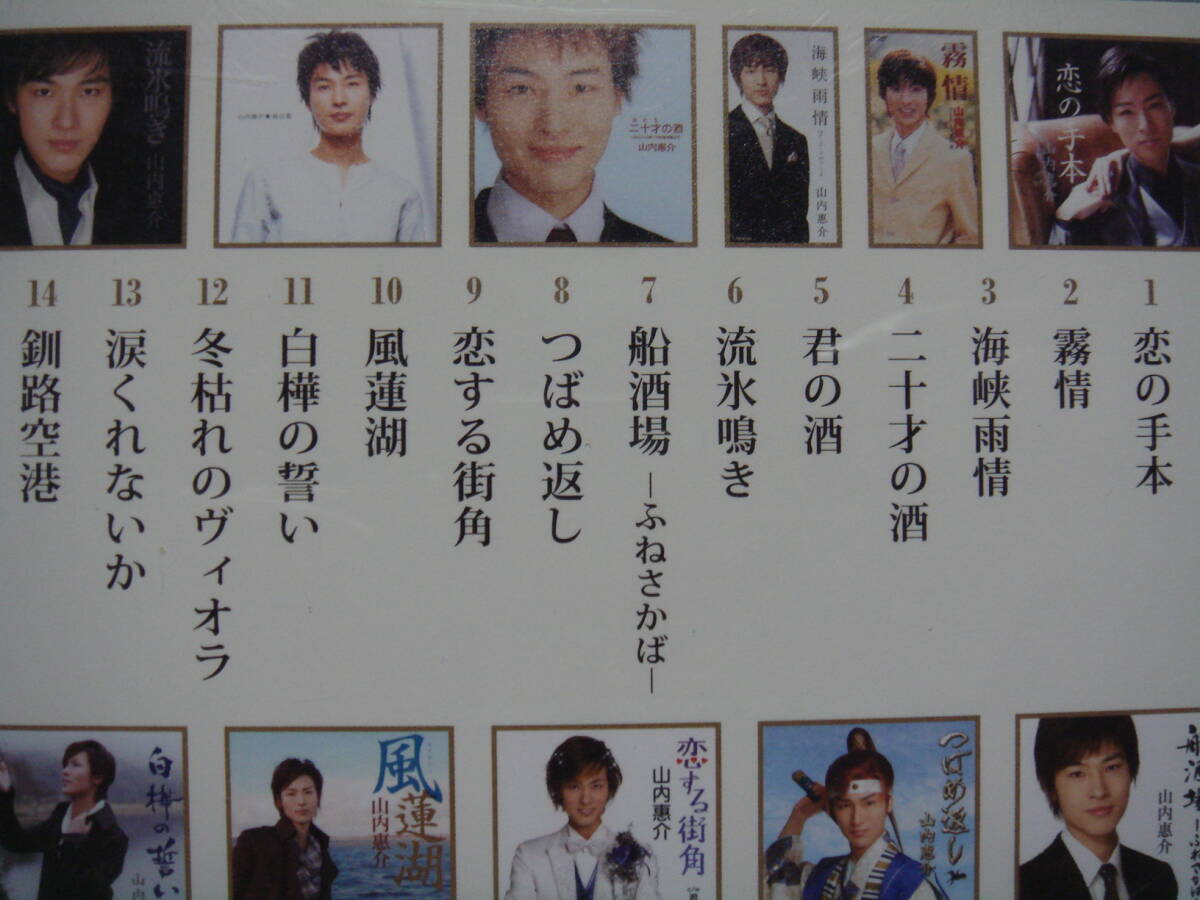 恋の手本
霧情
山内惠介
海峡雨情
山内惠介
二十才の酒
山内惠介
流氷鳴き
山内惠介
1
恋の手本
2
霧情
3
海峡雨情
4
二十才の酒
5
君の酒
6
流氷鳴き
7
船酒場 ―ふねさかば―
8
つばめ返し
9
恋する街角
10
風蓮湖
11
白樺の誓い
12
冬枯れのヴィオラ
13
涙くれないか
14
釧路空港
船酒場
山内惠介
つばめ返し
山内惠介
恋する街角
山内惠介
風蓮湖
山内惠介
白樺の誓い
山内